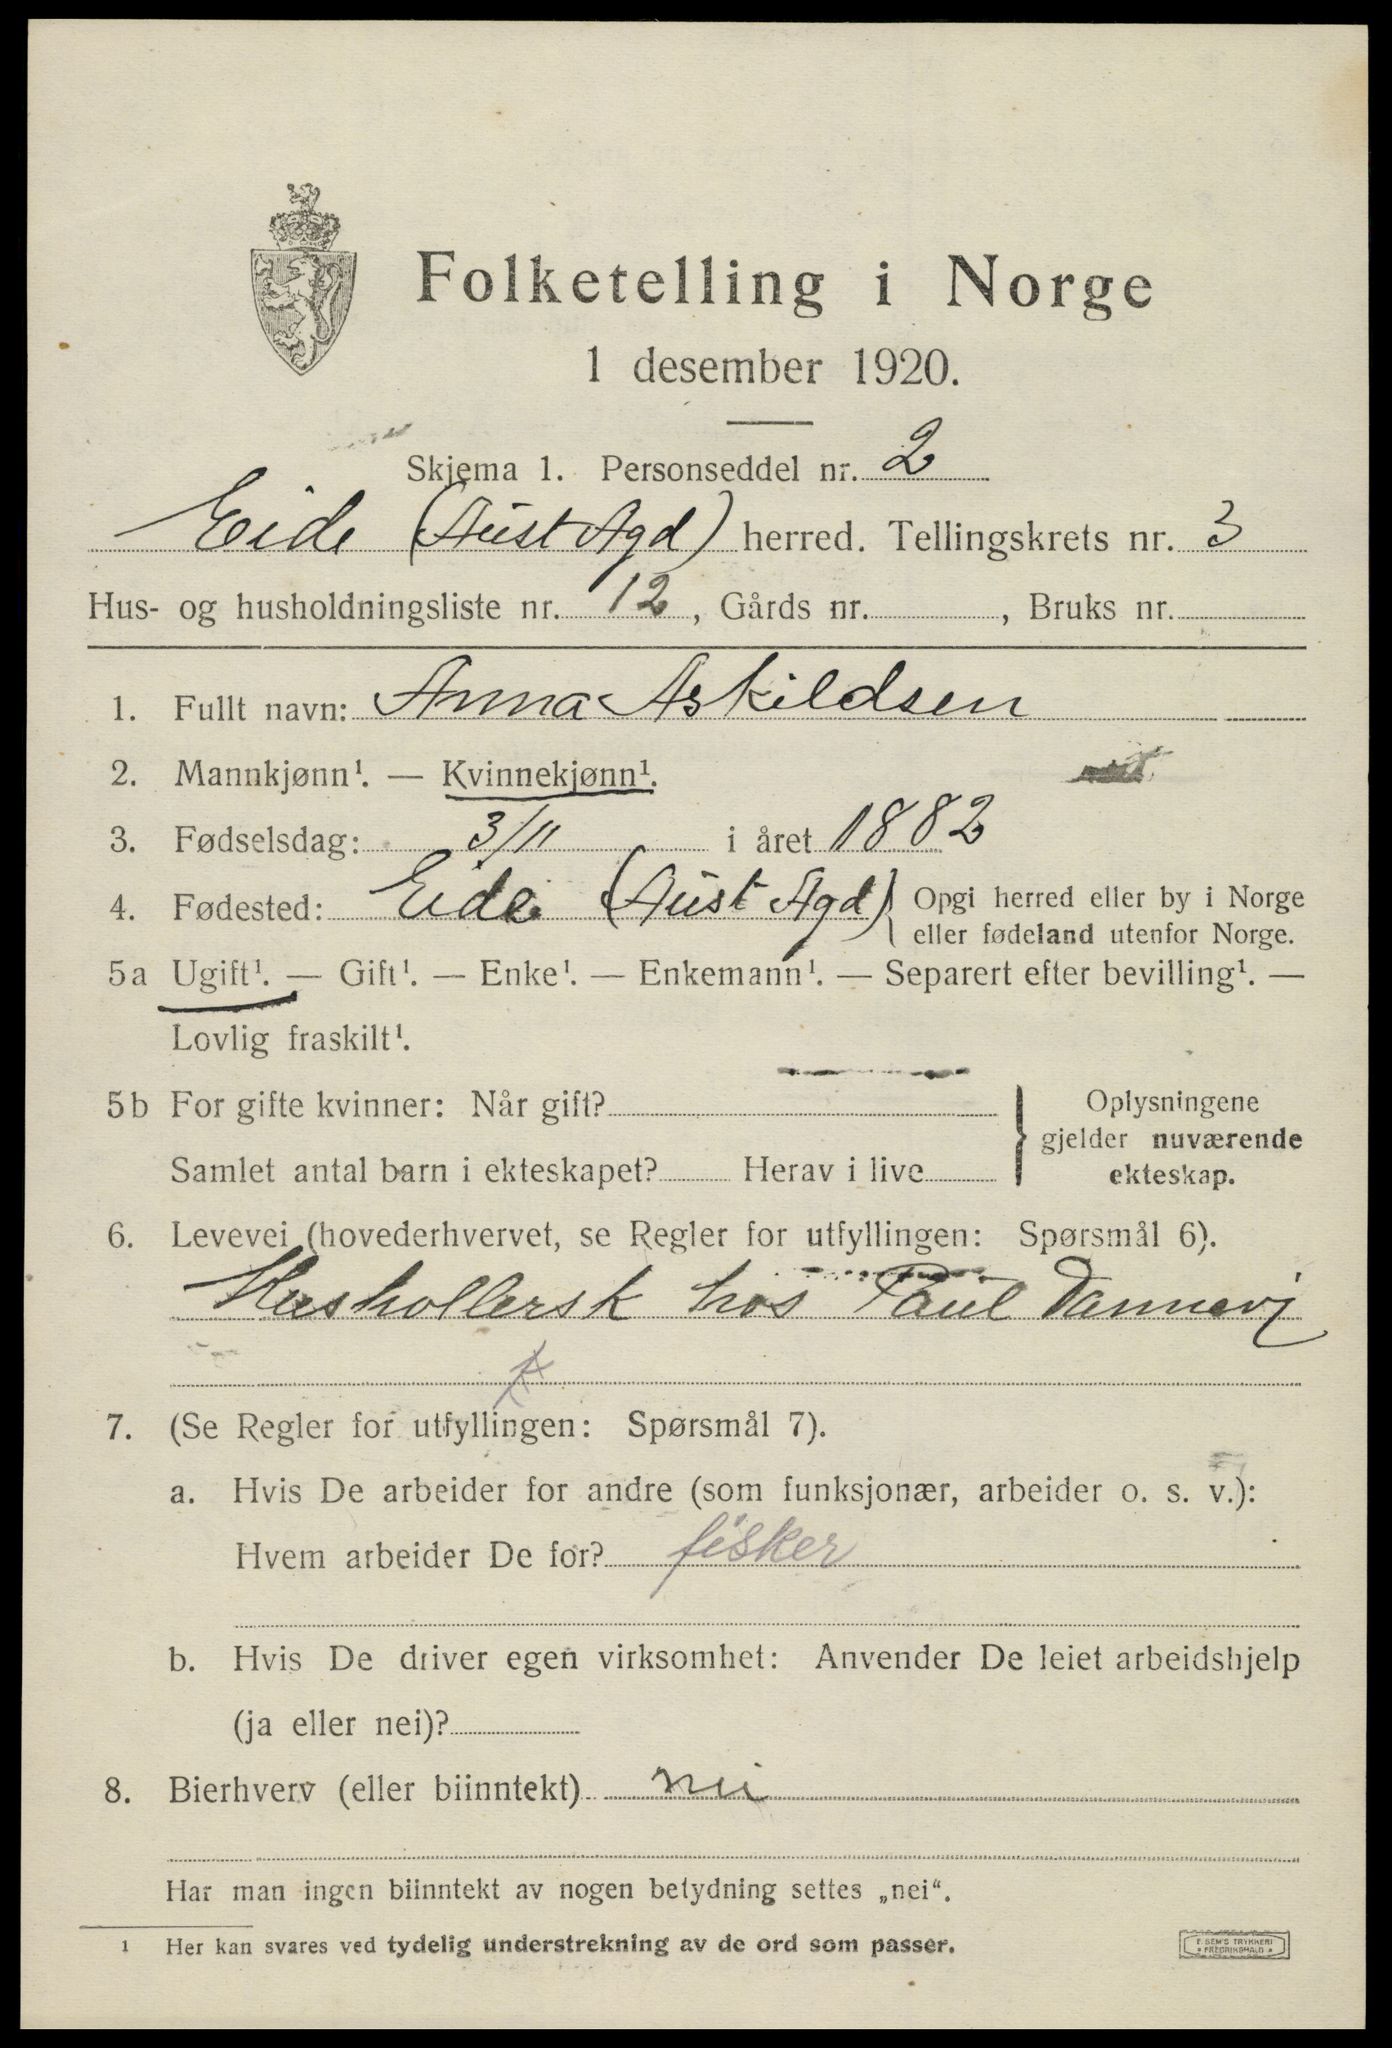 Folketelling i Norge
1 desember 1920.
Skjema 1. Personseddel nr. 2
Eide (Aust Agd) herred. Tellingskrets nr. 3
Hus- og husholdningsliste nr. 12, Gårds nr. , Bruks nr.
1. Fullt navn: Anna Askildsen
2. Mannkjønn¹. — Kvinnekjønn¹.
3. Fødselsdag: 3/11 i året 1882
4. Fødested: Eide (Aust Agd) Opgi herred eller by i Norge
eller fødeland utenfor Norge.
5a Ugift¹. — Gift¹. — Enke¹. — Enkemann¹. — Separert efter bevilling¹. —
Lovlig fraskilt¹.
5b For gifte kvinner: Når gift?
Samlet antal barn i ekteskapet? Herav i live
Oplysningene
gjelder nuværende
ekteskap.
6. Levevei (hovederhvervet, se Regler for utfyllingen: Spørsmål 6).
Hushollersk hos Paul Dannevi
7. (Se Regler for utfyllingen: Spørsmål 7).
a. Hvis De arbeider for andre (som funksjonær, arbeider o. s. v.):
Hvem arbeider De for? fisker
b. Hvis De driver egen virksomhet: Anvender De leiet arbeidshjelp
(ja eller nei)?
8. Bierhverv (eller biinntekt) nei
Har man ingen biinntekt av nogen betydning settes „nei“.
¹ Her kan svares ved tydelig understrekning av de ord som passer.
F. SEM'S TRYKKERI
FREDRIKSHALD